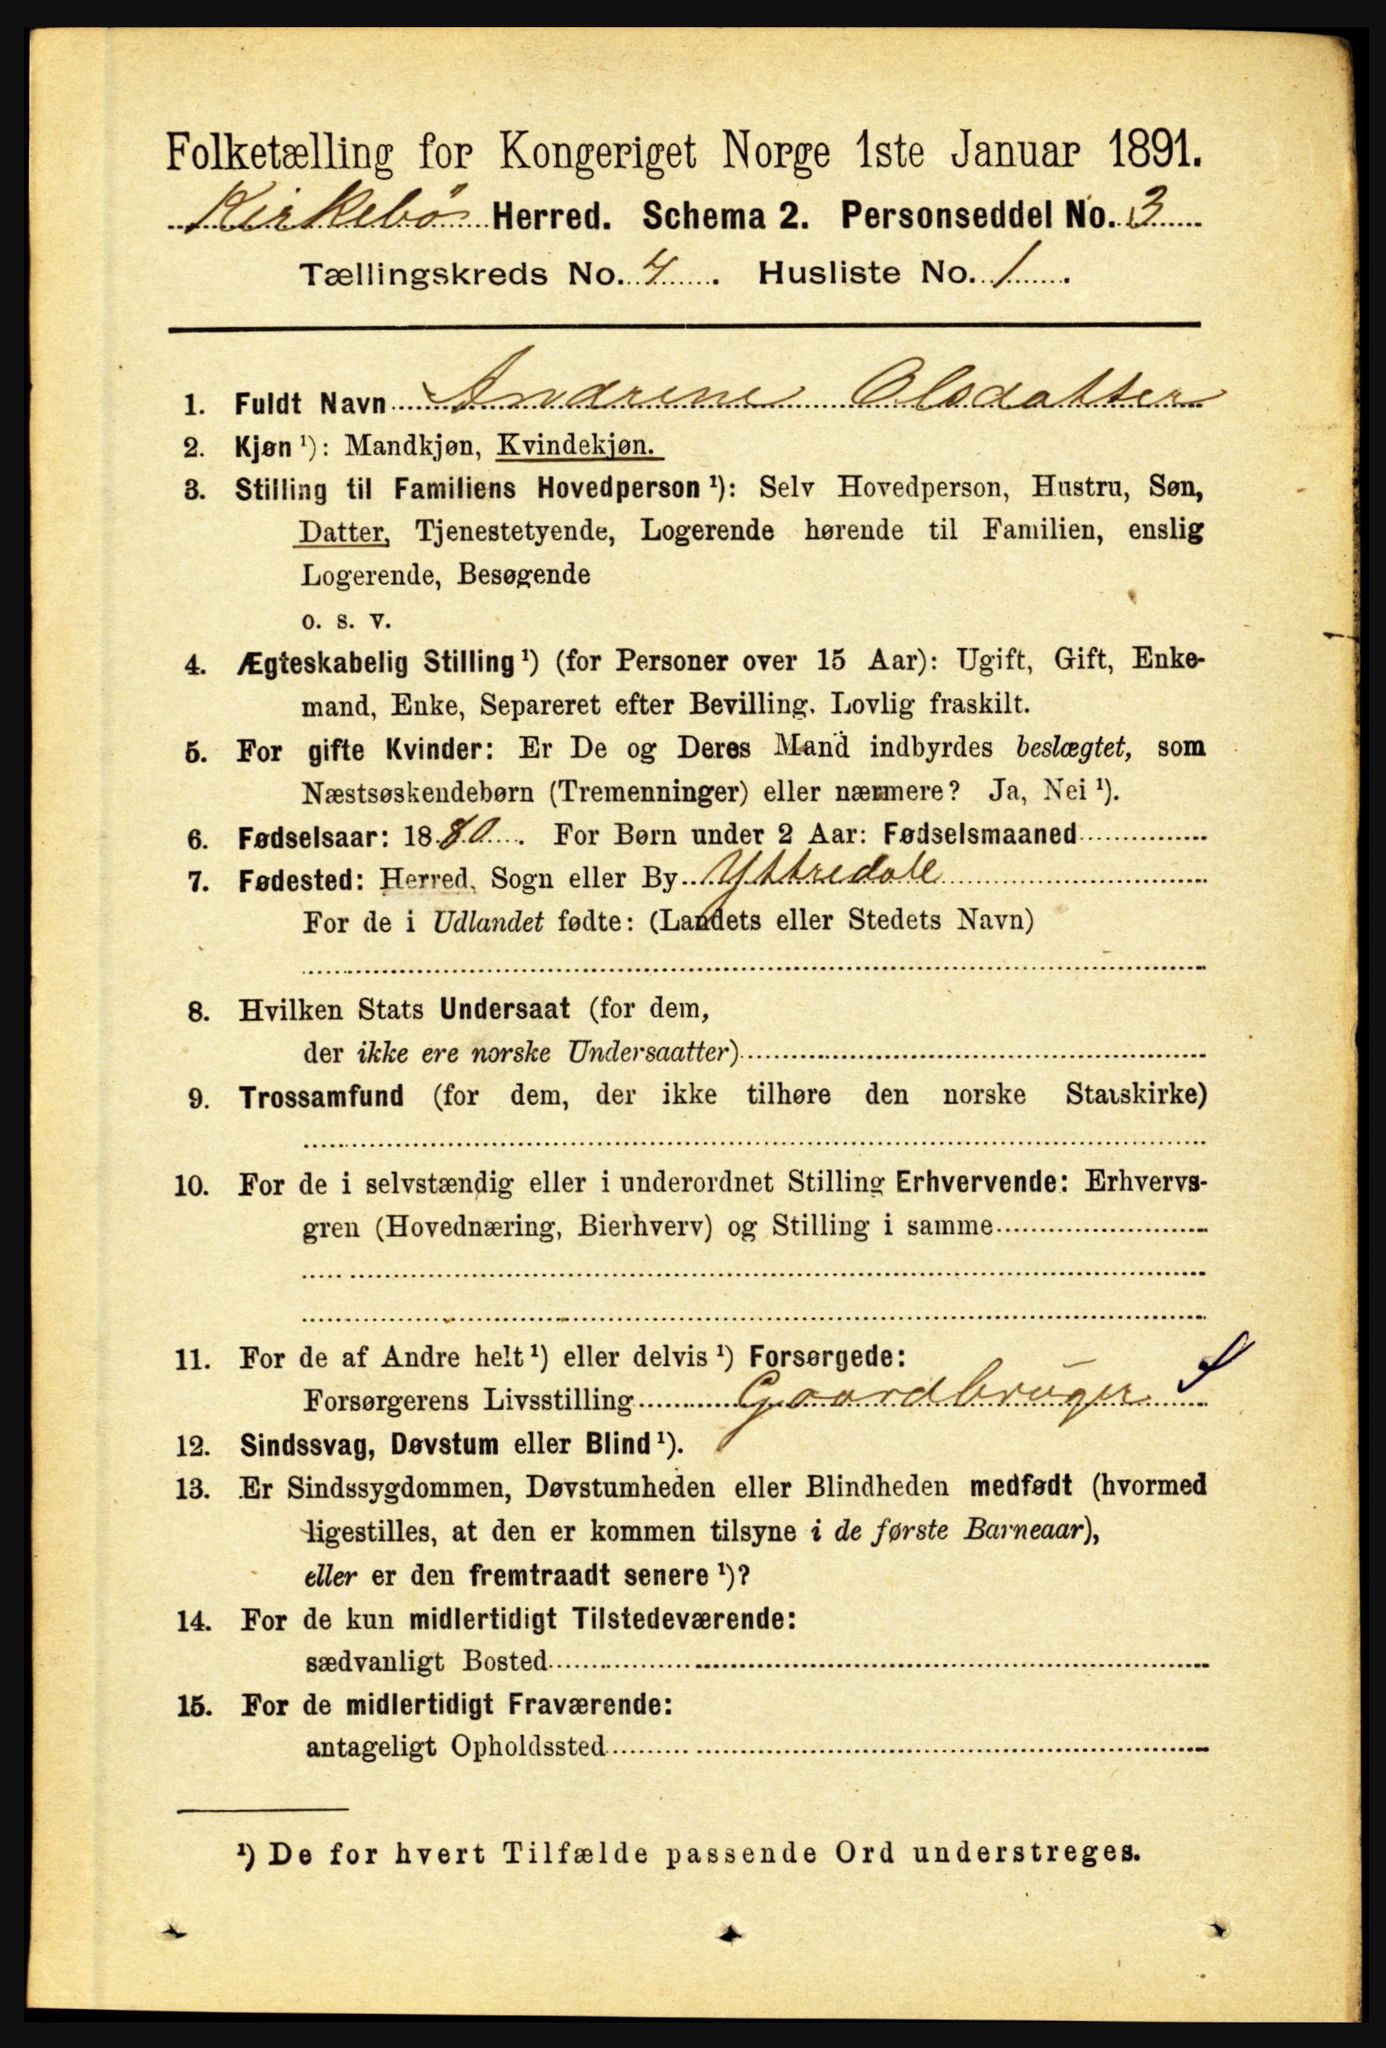 Folketælling for Kongeriget Norge 1ste Januar 1891.
Kirkebö Herred. Schema 2. Personseddel No. 3
Tællingskreds No. 4. Husliste No. 1.
1. Fuldt Navn Andrine Olsdatter
2. Kjøn ¹): Mandkjøn, Kvindekjøn.
3. Stilling til Familiens Hovedperson ¹): Selv Hovedperson, Hustru, Søn,
Datter, Tjenestetyende, Logerende hørende til Familien, enslig
Logerende, Besøgende
o. s. v.
4. Ægteskabelig Stilling ¹) (for Personer over 15 Aar): Ugift, Gift, Enke-
mand, Enke, Separeret efter Bevilling. Lovlig fraskilt.
5. For gifte Kvinder: Er De og Deres Mand indbyrdes beslægtet, som
Næstsøskendebørn (Tremenninger) eller nærmere? Ja, Nei ¹).
6. Fødselsaar: 1880. For Børn under 2 Aar: Fødselsmaaned
7. Fødested: Herred, Sogn eller By Yttredale
For de i Udlandet fødte: (Landets eller Stedets Navn)
8. Hvilken Stats Undersaat (for dem,
der ikke ere norske Undersaatter)
9. Trossamfund (for dem, der ikke tilhøre den norske Statskirke)
10. For de i selvstændig eller i underordnet Stilling Erhvervende: Erhvervs-
gren (Hovednæring, Bierhverv) og Stilling i samme
11. For de af Andre helt ¹) eller delvis ¹) Forsørgede:
Forsørgerens Livsstilling Gaardbruger S
12. Sindssvag, Døvstum eller Blind ¹).
13. Er Sindssygdommen, Døvstumheden eller Blindheden medfødt (hvormed
ligestilles, at den er kommen tilsyne i de første Barneaar),
eller er den fremtraadt senere ¹)?
14. For de kun midlertidigt Tilstedeværende:
sædvanligt Bosted
15. For de midlertidigt Fraværende:
antageligt Opholdssted
¹) De for hvert Tilfælde passende Ord understreges.